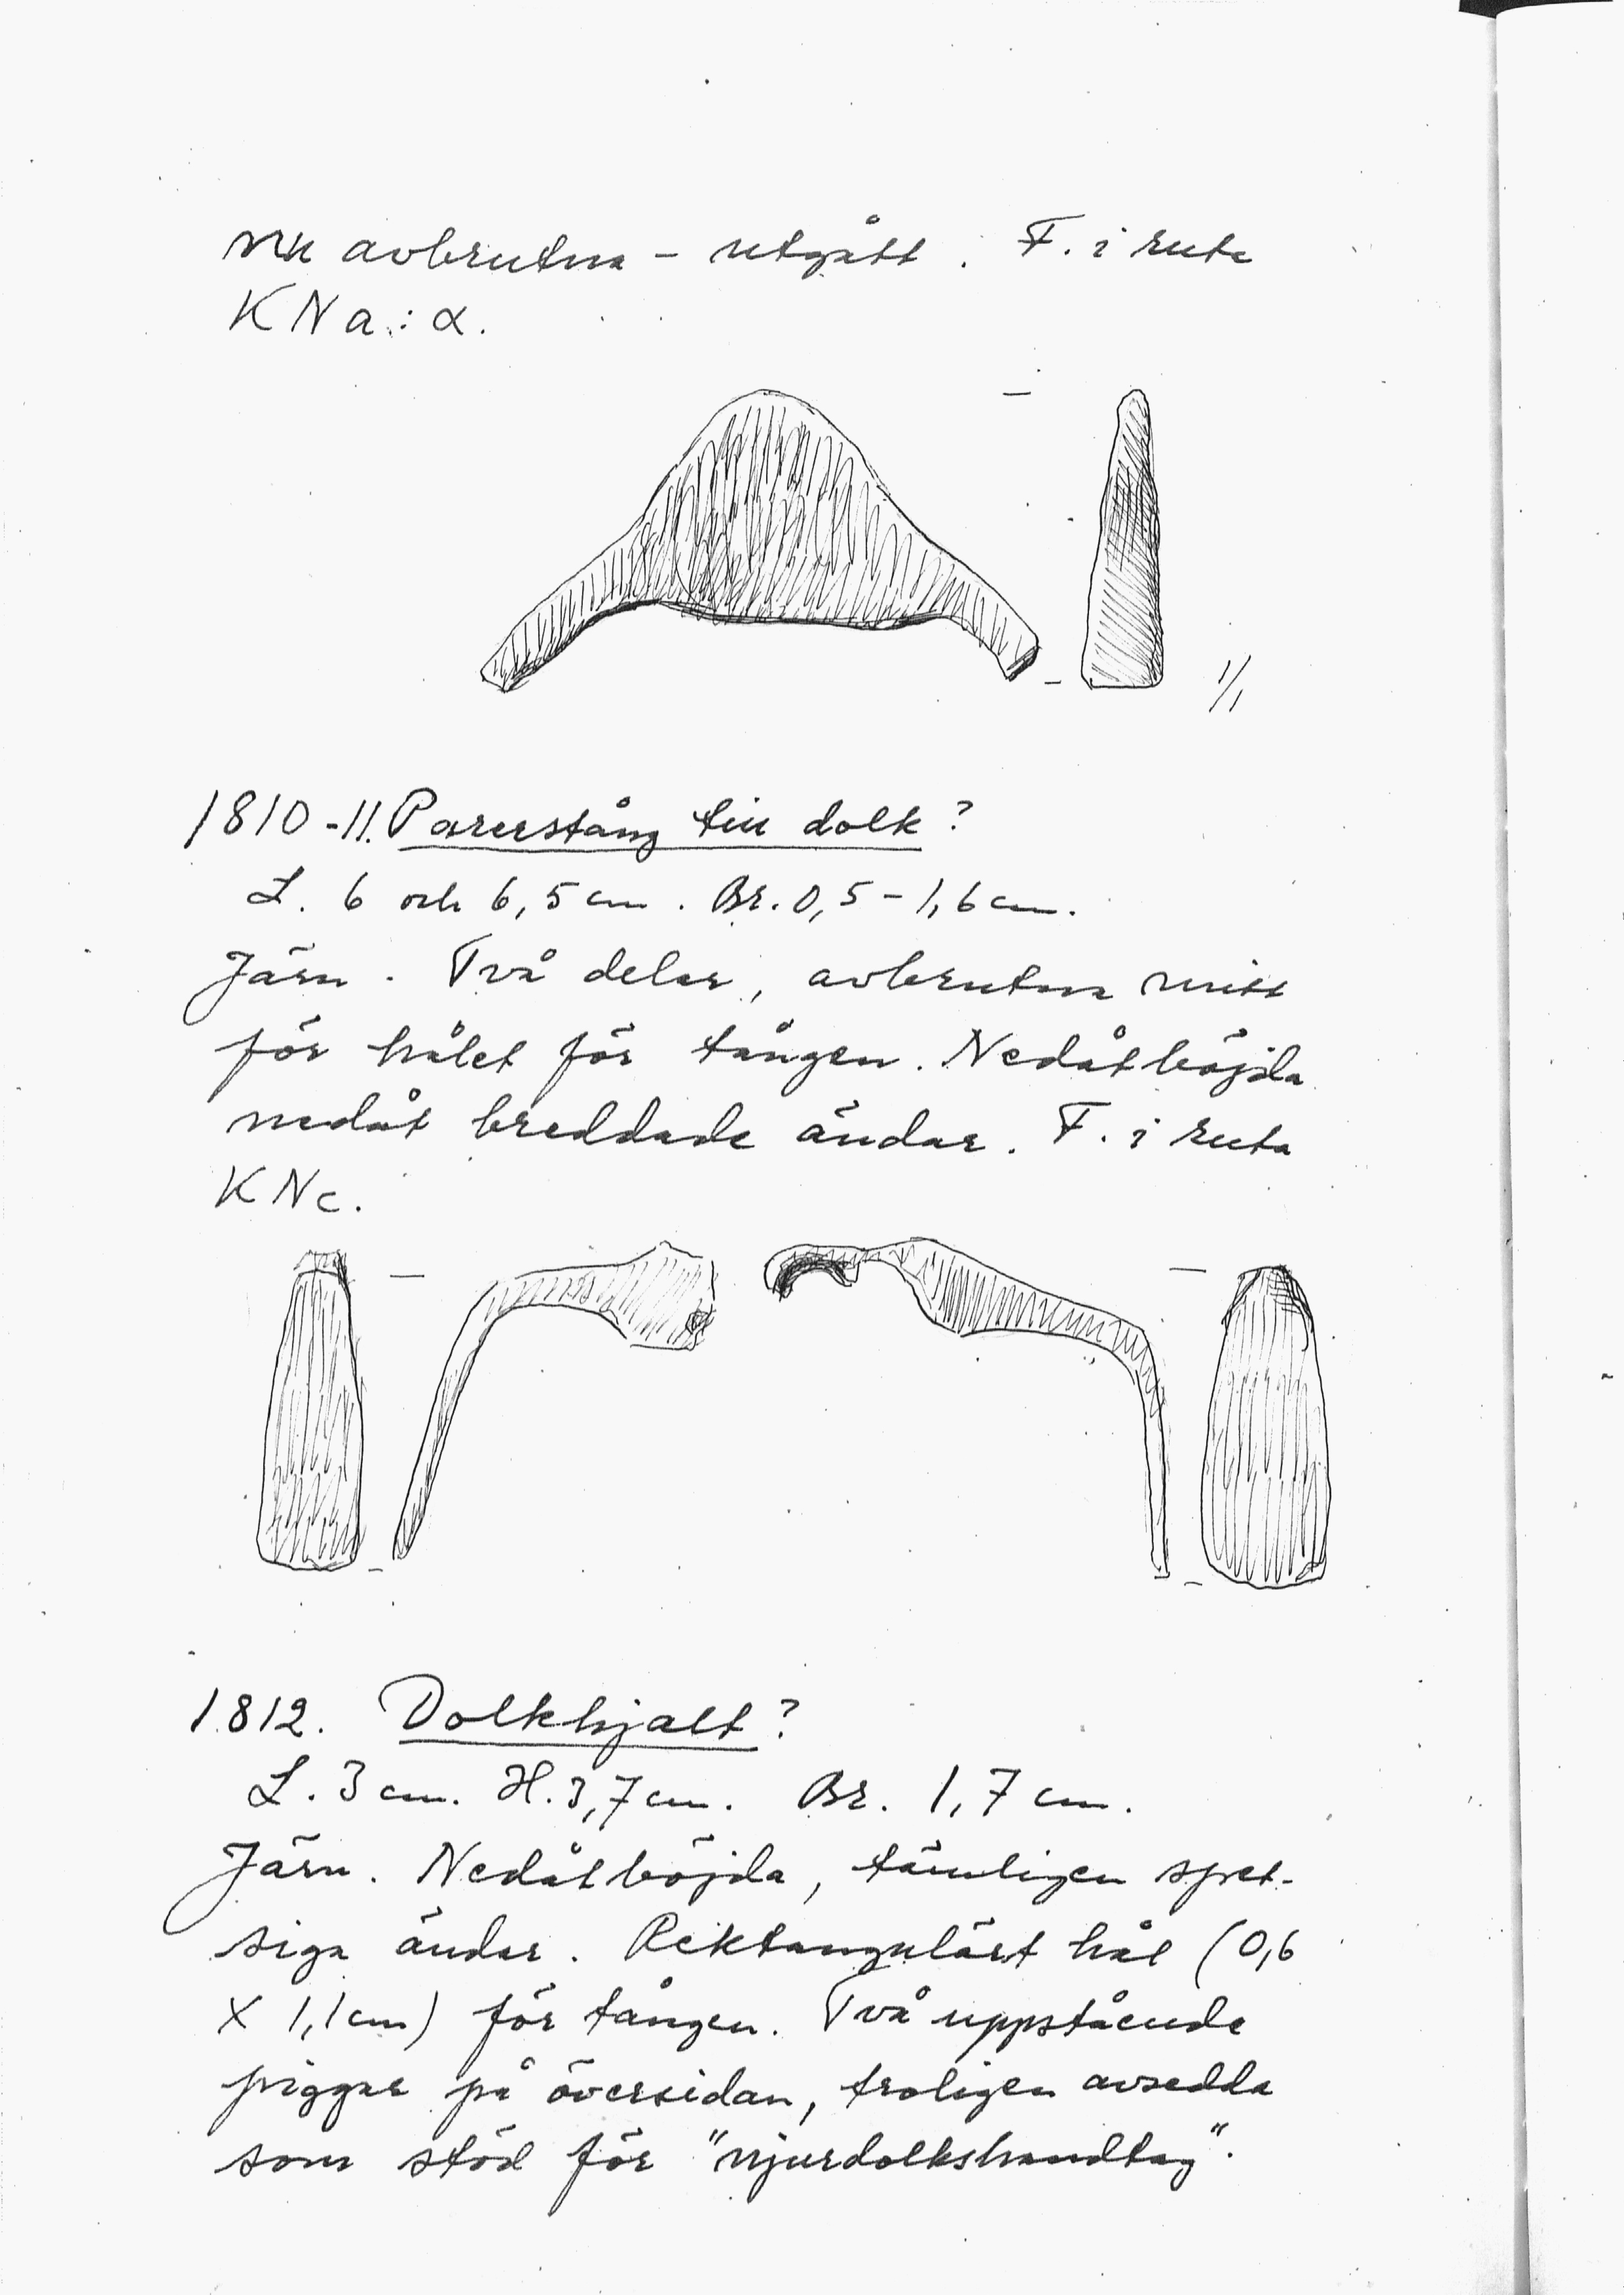 nu avbrutna – utgått. F. i ruta
KNa:α.
1/1
1810-11. Parerstång till dolk?
L. 6 och 6,5 cm. Br. 0,5 – 1,6 cm.
Järn. Två delar, avbrutna mitt
för hålet för tången. Nedåtböjda
nedåt breddade ändar. F. i ruta
KNc.
1812. Dolkhjalt?
L. 3 cm. H. 3,7 cm. Br. 1,7 cm.
Järn. Nedåtböjda, tämligen spet-
siga ändar. Rektangulärt hål (0,6
X 1,1 cm) för tången. Två uppstående
piggar på översidan, troligen avsedda
som stöd för "njurdolkshandtag".